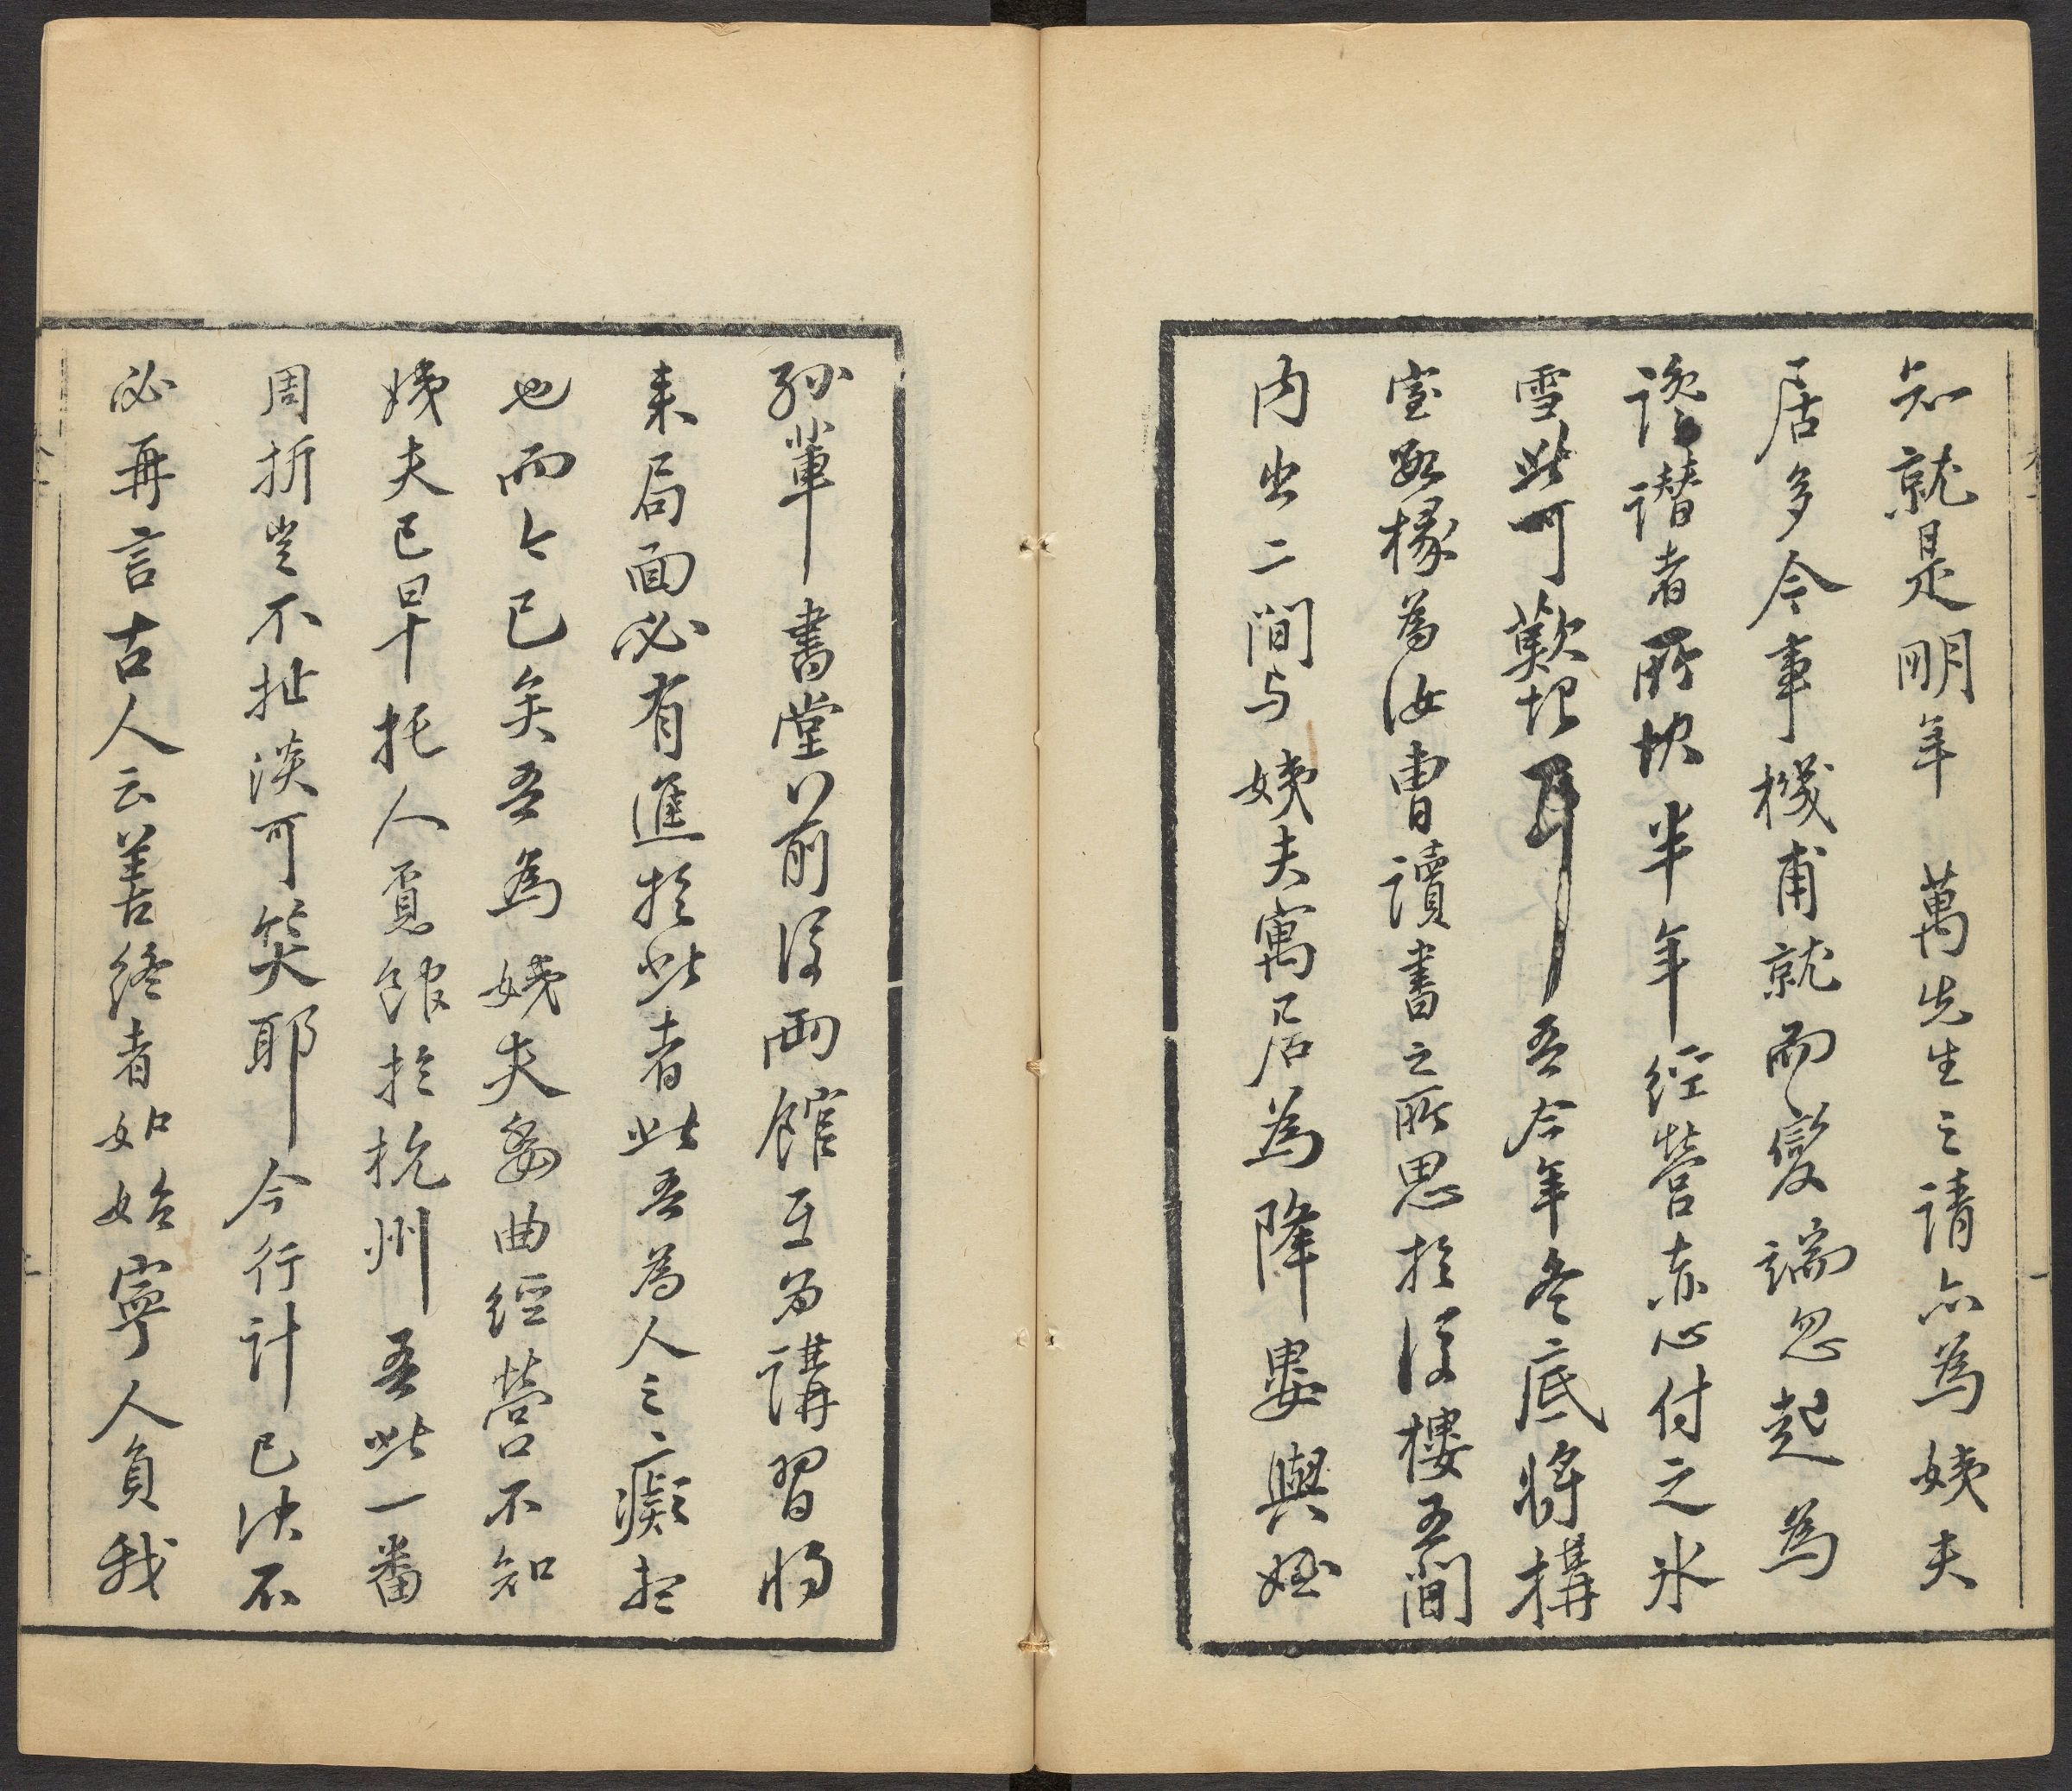 知就是明年　萬先生之請亦為姨夫
居多今事機甫就而變端忽起為
讒譖者所快半年經營赤心付之氷
雪此可歎恨耳吾今年冬底將搆
室數椽為汝曹讀書之所思於後樓五間
內出二間与姨夫寓居為降婁與姪
孫輩書堂前後兩館互為講習將
來局面必有進於此者此吾為人之癡想
也而今已矣吾為姨夫委曲經營不知
姨夫已早托人覓館於杭州吾此一番
周折豈不扯淡可笑耶今行計已決不
必再言古人云善終者如始寧人負我